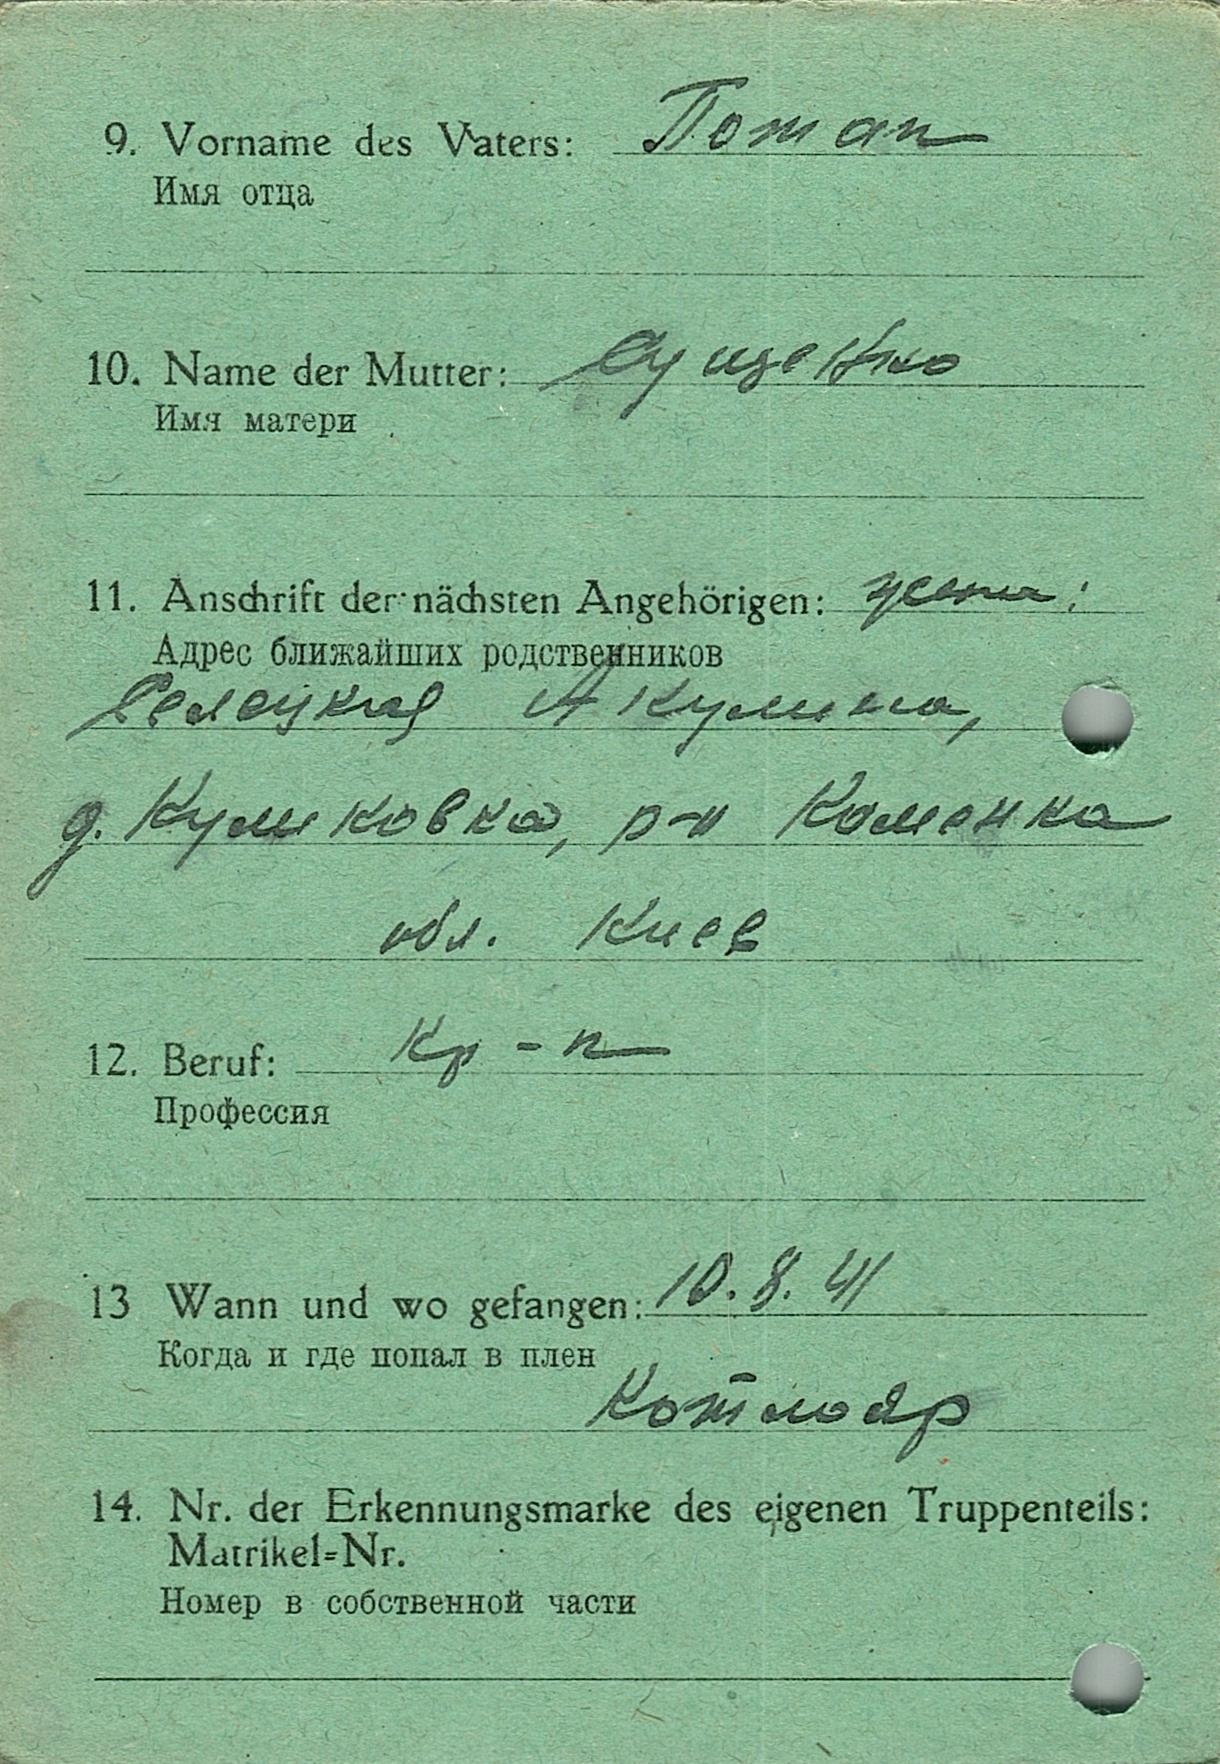 9. Vorname des Vaters: Потап
Имя отца
10. Name der Mutter: Сущенко
Имя матери
11. Anschrift der nächsten Angehörigen: жена:
Адрес ближайших родственников
Акулина,
д. Куликовка, р-н Каменка
обл. Киев
12. Beruf: Кр-н
Профессия
13 Wann und wo gefangen: 10.8.41
Когда и где попал в плен
14. Nr. der Erkennungsmarke des eigenen Truppenteils:
Matrikel=Nr.
Номер в собственной части